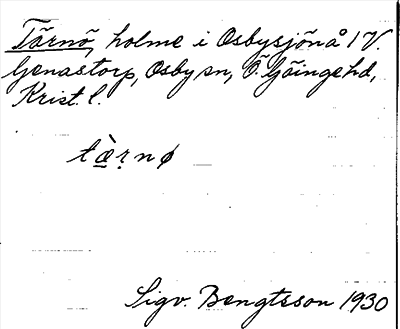 Tärnö, holme i Osbysjön å 1 V.
Genastorp, Osby sn, Ö. Göinge hd,
Krist. l.
tæ̀ṛnø
Sigv. Bengtsson 1930